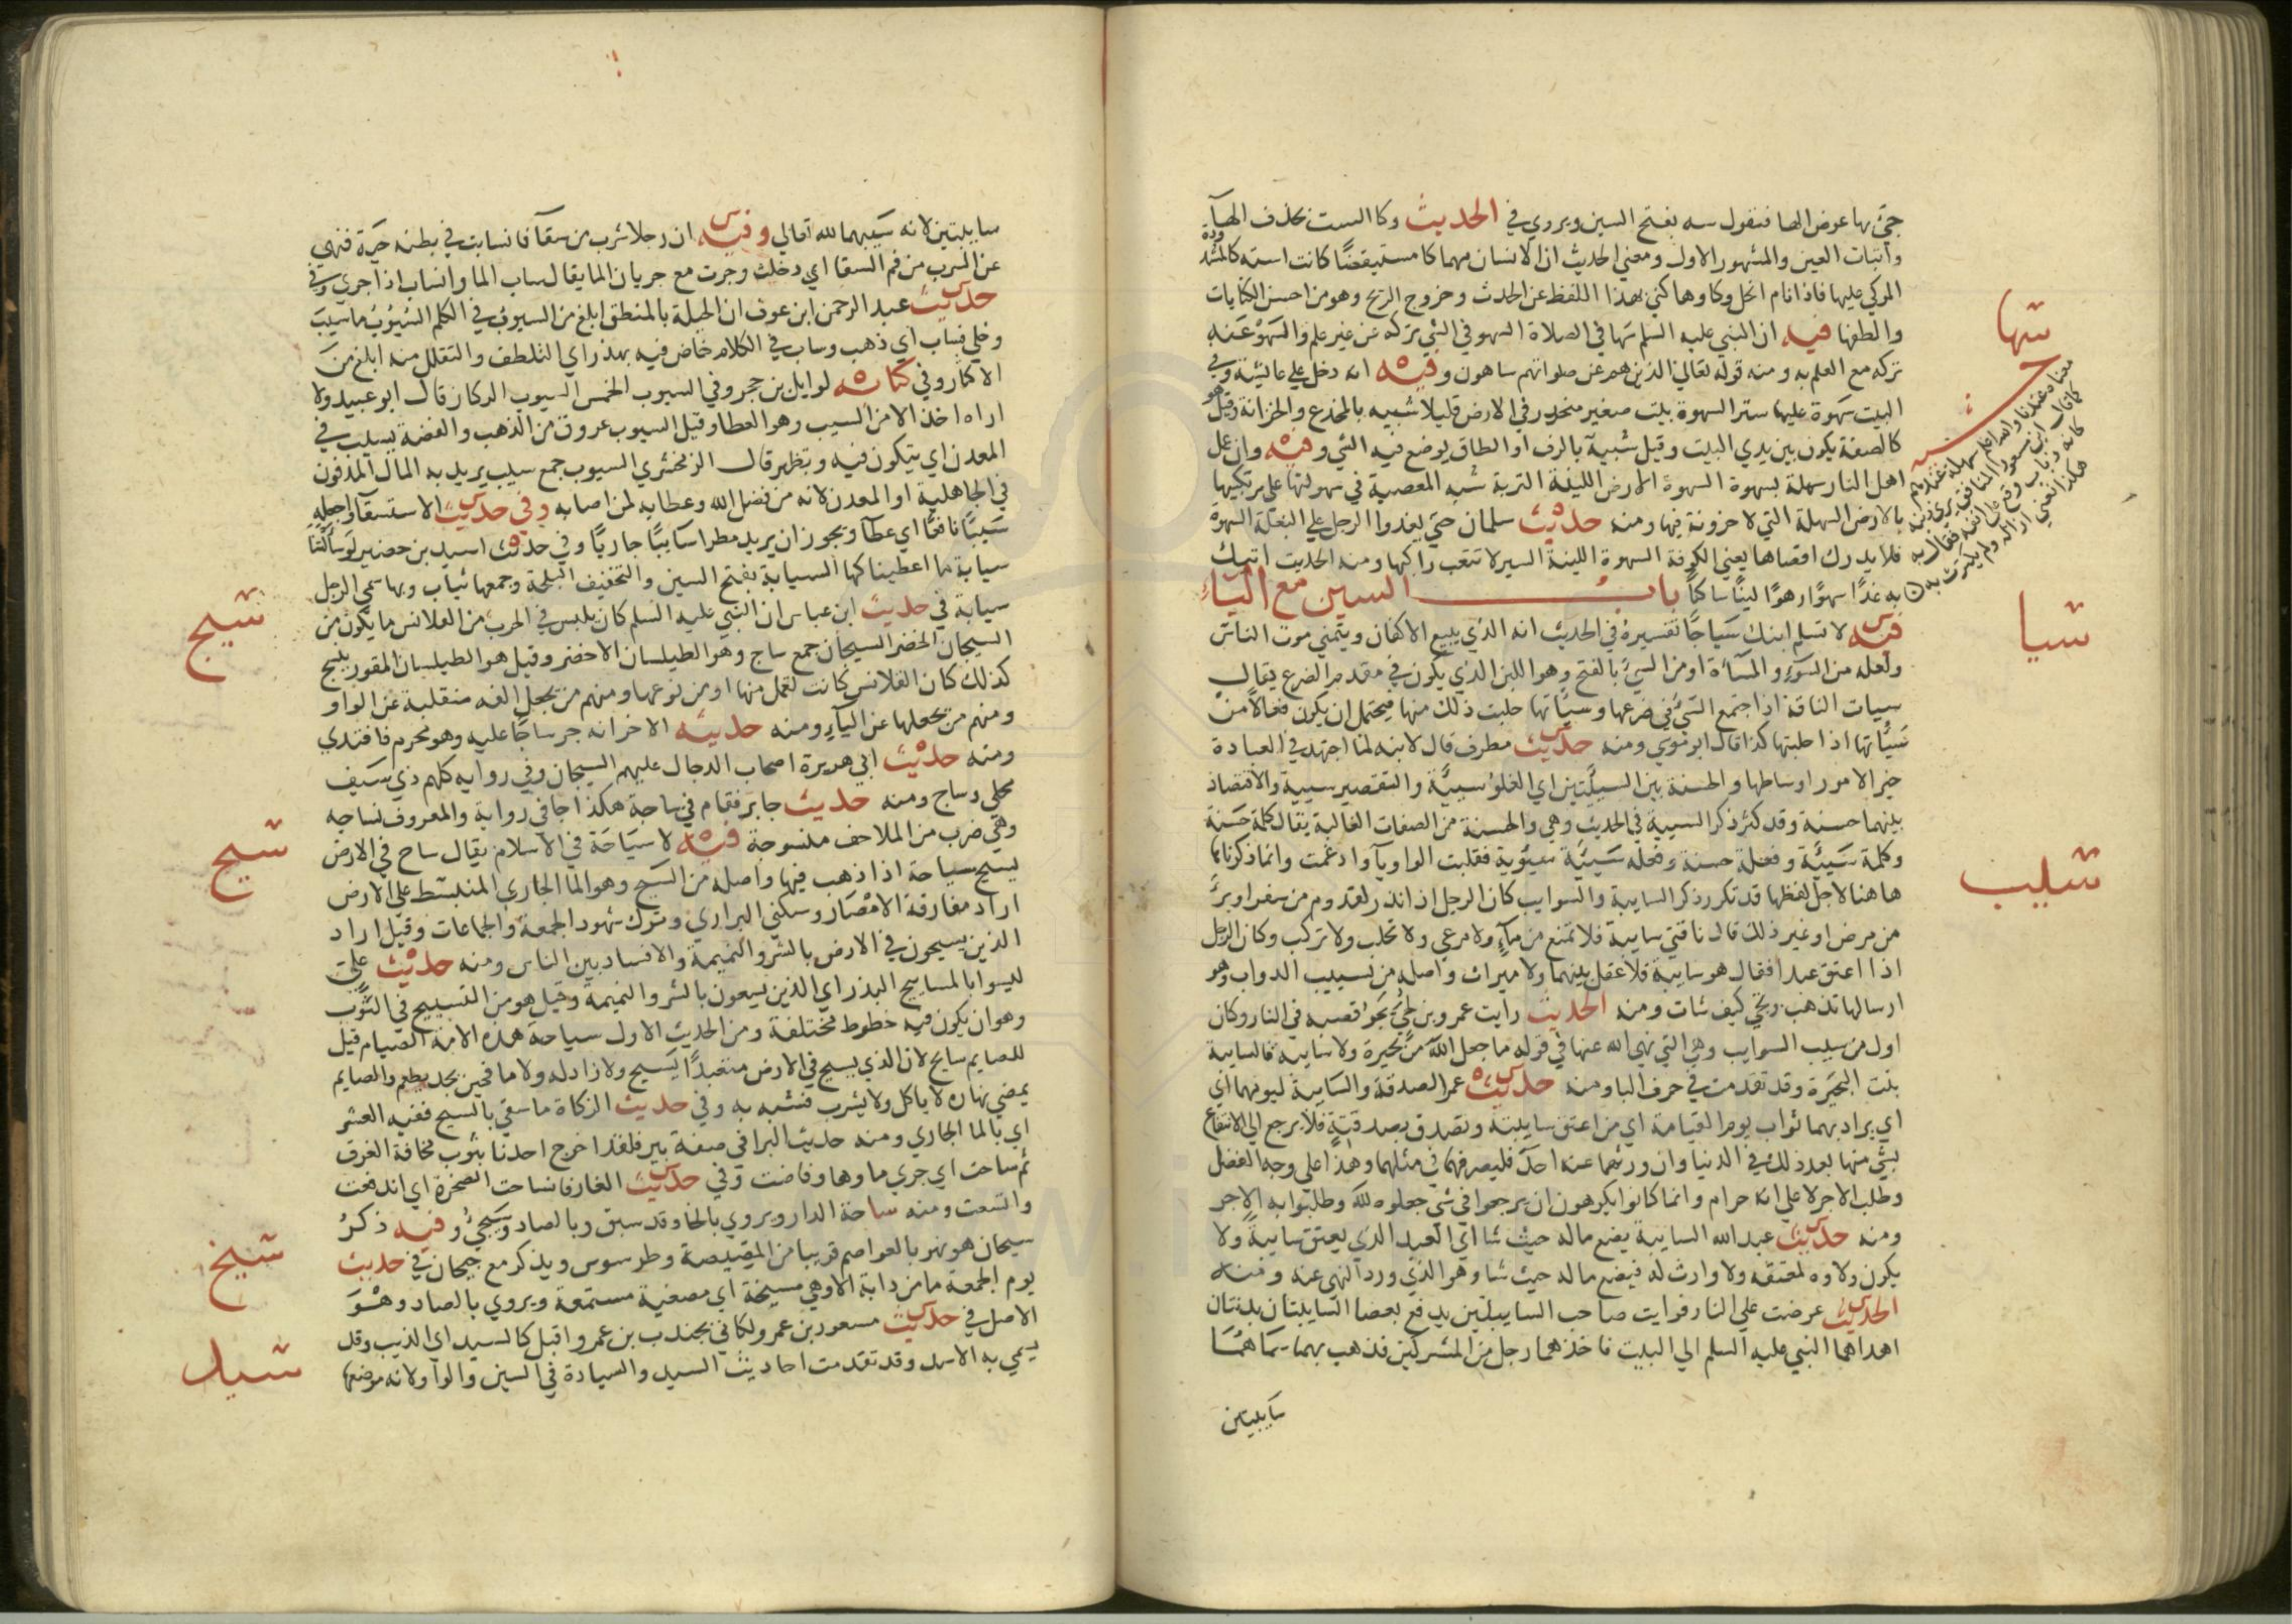 جئ بها عوض الها فنقول سه بفتح السين ويروي في الحديث وكا الست بحذف الهآء
واثبات العين والمشهور الاول ومعني الحديث ان الانسان مهما كا مستيقضًا كانت استه كالمشدودة
الموكي عليها فاذا نام انحل وكاوها كني بهذا اللفظ عن الحدث وخروج الريح وهو من احسن الكنايات
والطفها فيه ان النبي عليه السلم سَها في الصلاة السهو في الشي تركه عن غير علم والسَهوْ عَنه
تركه مع العلم به ومنه قوله تعالي الذين هم عن صلواتهم ساهون وفيه انه دخل علي عائشة وفي
البيت سَهوة عليها ستر السهوة بيت صغير منحدر في الارض قليلا شبيه بالمخدع والخزانة وقيل هو
كالصفة يكون بين يدي البيت وقيل شبيه بالرف او الطاق يوضع فيه الشي وفيه وان عمل
اهل النار سهلة بسهوة السهوة الارض اللينة التربة شبه المعصية في سهولتها علي مرتكبها
بالارض السهلة التي لا حزونة فيها ومنه حديث سلمان حتي يغدوا الرجل علي البغلة السهوة
فلا يدرك اقصاها يعني الكوفة السهوة اللينة السير لا تتعب راكبها ومنه الحديث اتيك
به غدًا سهوًا رهوًا لينًا ساكنًا باب السين مع اليآء
فيه لا تسلم ابنك سَيَاجًا تفسيره في الحديث انه الذي يبيع الاكفان ويتمني موت الناس
ولعله من السَوء والمسآءة او من السَيئ بالفتح وهو اللبن الذي يكون في مقدم الضرع يقال
سيات الناقة اذا اجتمع السَيئ في ضرعها وسيَّاتها حلبت ذلك منها فيحتمل ان يكون فعالًا من
سَيَّاتها اذا حلبتها كذا قال ابو موسي ومنه حديث مطرف قال لابنه لما اجتهد في العبادة
خير الامور اوساطها والحسنة بين السيئتين اي الغلو سيئة والتقصير سيئة والاقتصاد
بينهما حسنة وقد كثر ذكر السيئة في الحديث وهي والحسنة من الصفات الغالبة يقال كلمة حَسَنة
وكلمة سَيئَة وفعلة حسنة وفعله سَيئَة سيْوية فقلبت الواو يآ وادغمت وانما ذكرناها
هاهنا لاجل لفظها قد تكرر ذكر السايبة والسوايب كان الرجل اذا نذر لقدوم من سفر او برءٍ
من مرض او غير ذلك قال ناقتي سايبة فلا تمنع من مآءٍ ولا مرعي ولا تحلب ولا تركب وكان الرجل
اذا اعتق عبدا فقال هو سايبة فلا عقل بينهما ولا ميراث واصله من تسييب الدواب وهو
ارسالها تذهب وتجي كيف شات ومنه الحديث رايت عمرو بن لحيٍّ يجرُ قصبه في النار وكان
اول من سيب السوايب وهي التي نهي الله عنها في قوله ما جعل الله من بحيرة ولا سايبة فالسايبة
بنت البحيَرة وقد تقدمت في حرف البا ومنه حديث عمر الصدقة والسَايبة ليومهما اي
اي يراد بهما ثواب يوم القيامة اي من اعتق سايبته وتصدق بصدقته فلا يرجع الي الانتفاع
بشي منها بعد ذلك في الدنيا وان ورثهما عنه احد فليصرفهما في مثلهما وهذا علي وجه الفضل
وطلب الاجر لا علي انه حرام وانما كانوا يكرهون ان يرجعوا في شي جعلوه لله وطلبوا به الاجر
ومنه حديث عبد الله السايبة يضع ماله حيث شا اي العبد الذي يعتق سايبةً ولا
يكون ولاوه لمعتقه ولا وارث له فيضع ماله حيث شا وهو الذي ورد النهي عنه ومنه
الحديث عرضت علي النار فرايت صاحب السايبتين يدفع بعصا السايبتان بدنتان
اهداهما النبي عليه السلم الي البيت فاخذهما رجل من المشركين فذهب بهما سَمَاهمَا
سَايبتين
سها
معناه عندنا والله اعلم سهلة عندهم
كما قال ابن مسعود المنافق يري ذنبه
كانه ذباب وقع علي انفه فقال به
هكذا يعني ازاله ولم يكترث به
سيا
سيب
سايبتين لانه سَيبهما لله تعالي وفيه ان رجلا شرب من سقآ فانسابت في بطنه حيَة فنهي
عن الشرب من فم السقا اي دخلت وجرت مع جريان الما يقال ساب الما وانساب اذا جري وفي
حديث عبد الرحمن ابن عوف ان الحيلة بالمنطق ابلغ من السيوب في الكلم السُيُوْبُ ما سيبَ
وخلي فساب اي ذهب وساب في الكلام خاض فيه بهذر اي التلطف والتقلل منه ابلغ منَ
الاكثار وفي كتابه لوايل بن حجر وفي السيوب الخمس السيوب الركاز قال ابو عبيد ولا
اراه اخذ الا من السيب وهو العطا وقيل السيوب عروق من الذهب والفضة تسيب في
المعدن اي تتكون فيه وتظهر قال الزمخشري السيوب جمع سيب يريد به المال المدفون
في الجاهلية او المعدن لانه من فضل الله وعطايه لمن اصابه وفي حديث الاستسقآ واجعله
سَيبًا نافعًا اي عطآ ويجوز ان يريد مطرا سآيبًا جاريًا وفي حديث اسيد بن حضير لَو سأَلتَنا
سيابة ما اعطيناكها السيابة بفتح السين والتخفيف البلحة وجمعها سياب وبها سمي الرجل
سيابة في حديث ابن عباس ان النبي عليه السلم كان يلبس في الحرب من القلانس ما يكون من
السيجان الخضر السيجان جمع ساج وهو الطيلسان الاخضر وقيل هو الطيلسان المقور ينسج
كذلك كان القلانس كانت تعمل منها او من نوعها ومنهم من يجعل الفه منقلبة عن الواو
ومنهم من يجعلها عن اليآء ومنه حديثه الاخر انه جر ساجًا عليه وهو محرم فافتدي
ومنه حديث ابي هريرة اصحاب الدجال عليهم السيجان وفي روايه كلهم ذي سَيف
محلي وساج ومنه حديث جابر فقام في ساجة هكذا جا في رواية والمعروف نساجه
وهي ضرب من الملاحف منسوجة فيه لا سيَاحَة في الاسلام يقال ساح في الارض
يسيح سياحة اذا ذهب فيها واصله من السَيح وهو الما الجاري المنبسَط علي الارض
اراد مفارقة الامْصَار وسكني البراري وترك شهود الجمعة والجماعات وقيل اراد
الذين يسيحون في الارض بالشر والنميمة والافساد بين الناس ومنه حديث عليّ
ليسوا بالمساييح البذر اي الذين يسعون بالشر والنميمة وقيل هو من التسييح في الثَوْب
وهو ان يكون فيه خطوط مختلفة ومن الحديث الاول سياحة هذه الامة الصيام قيل
للصايم سايح لان الذي يسيح في الارض متعبدًا يَسيح ولا زاد له ولا ما فحين يجد يطعم والصايم
يمضي نهاره لا ياكل ولا يشرب فشبه به وفي حديث الزكاة ما سقي بالسيح ففيه العشر
اي بالما الجاري ومنه حديث البرا في صفة بير فلقد اخرج احدنا بثوب مخافة الغرق
ثم ساحت اي جري ماوها وفاضت وفي حديث الغار فانساحت الصخرة اي اندفعت
واتسعت ومنه ساحة الدار ويروي بالخا وقد سبق وبالصاد وسَيجئُ وفيه ذكرُ
سيحان هو نهر بالعواصم قريبا من المصيصة وطرسوس ويذكر مع جيحان في حديث
يوم الجمعة ما من دابة الا وهي مسيخة اي مصغية مستمعة ويروي بالصاد وهْوَ
الاصل في حديث مسعود بن عمرو لكاني بجندب بن عمرو اقبل كالسيد اي الذيب وقد
يسمي به الاسد وقد تقدمت احاديث السيد والسيادة في السين والواو لانه موضعها
سيج
سيح
سيخ
سيد